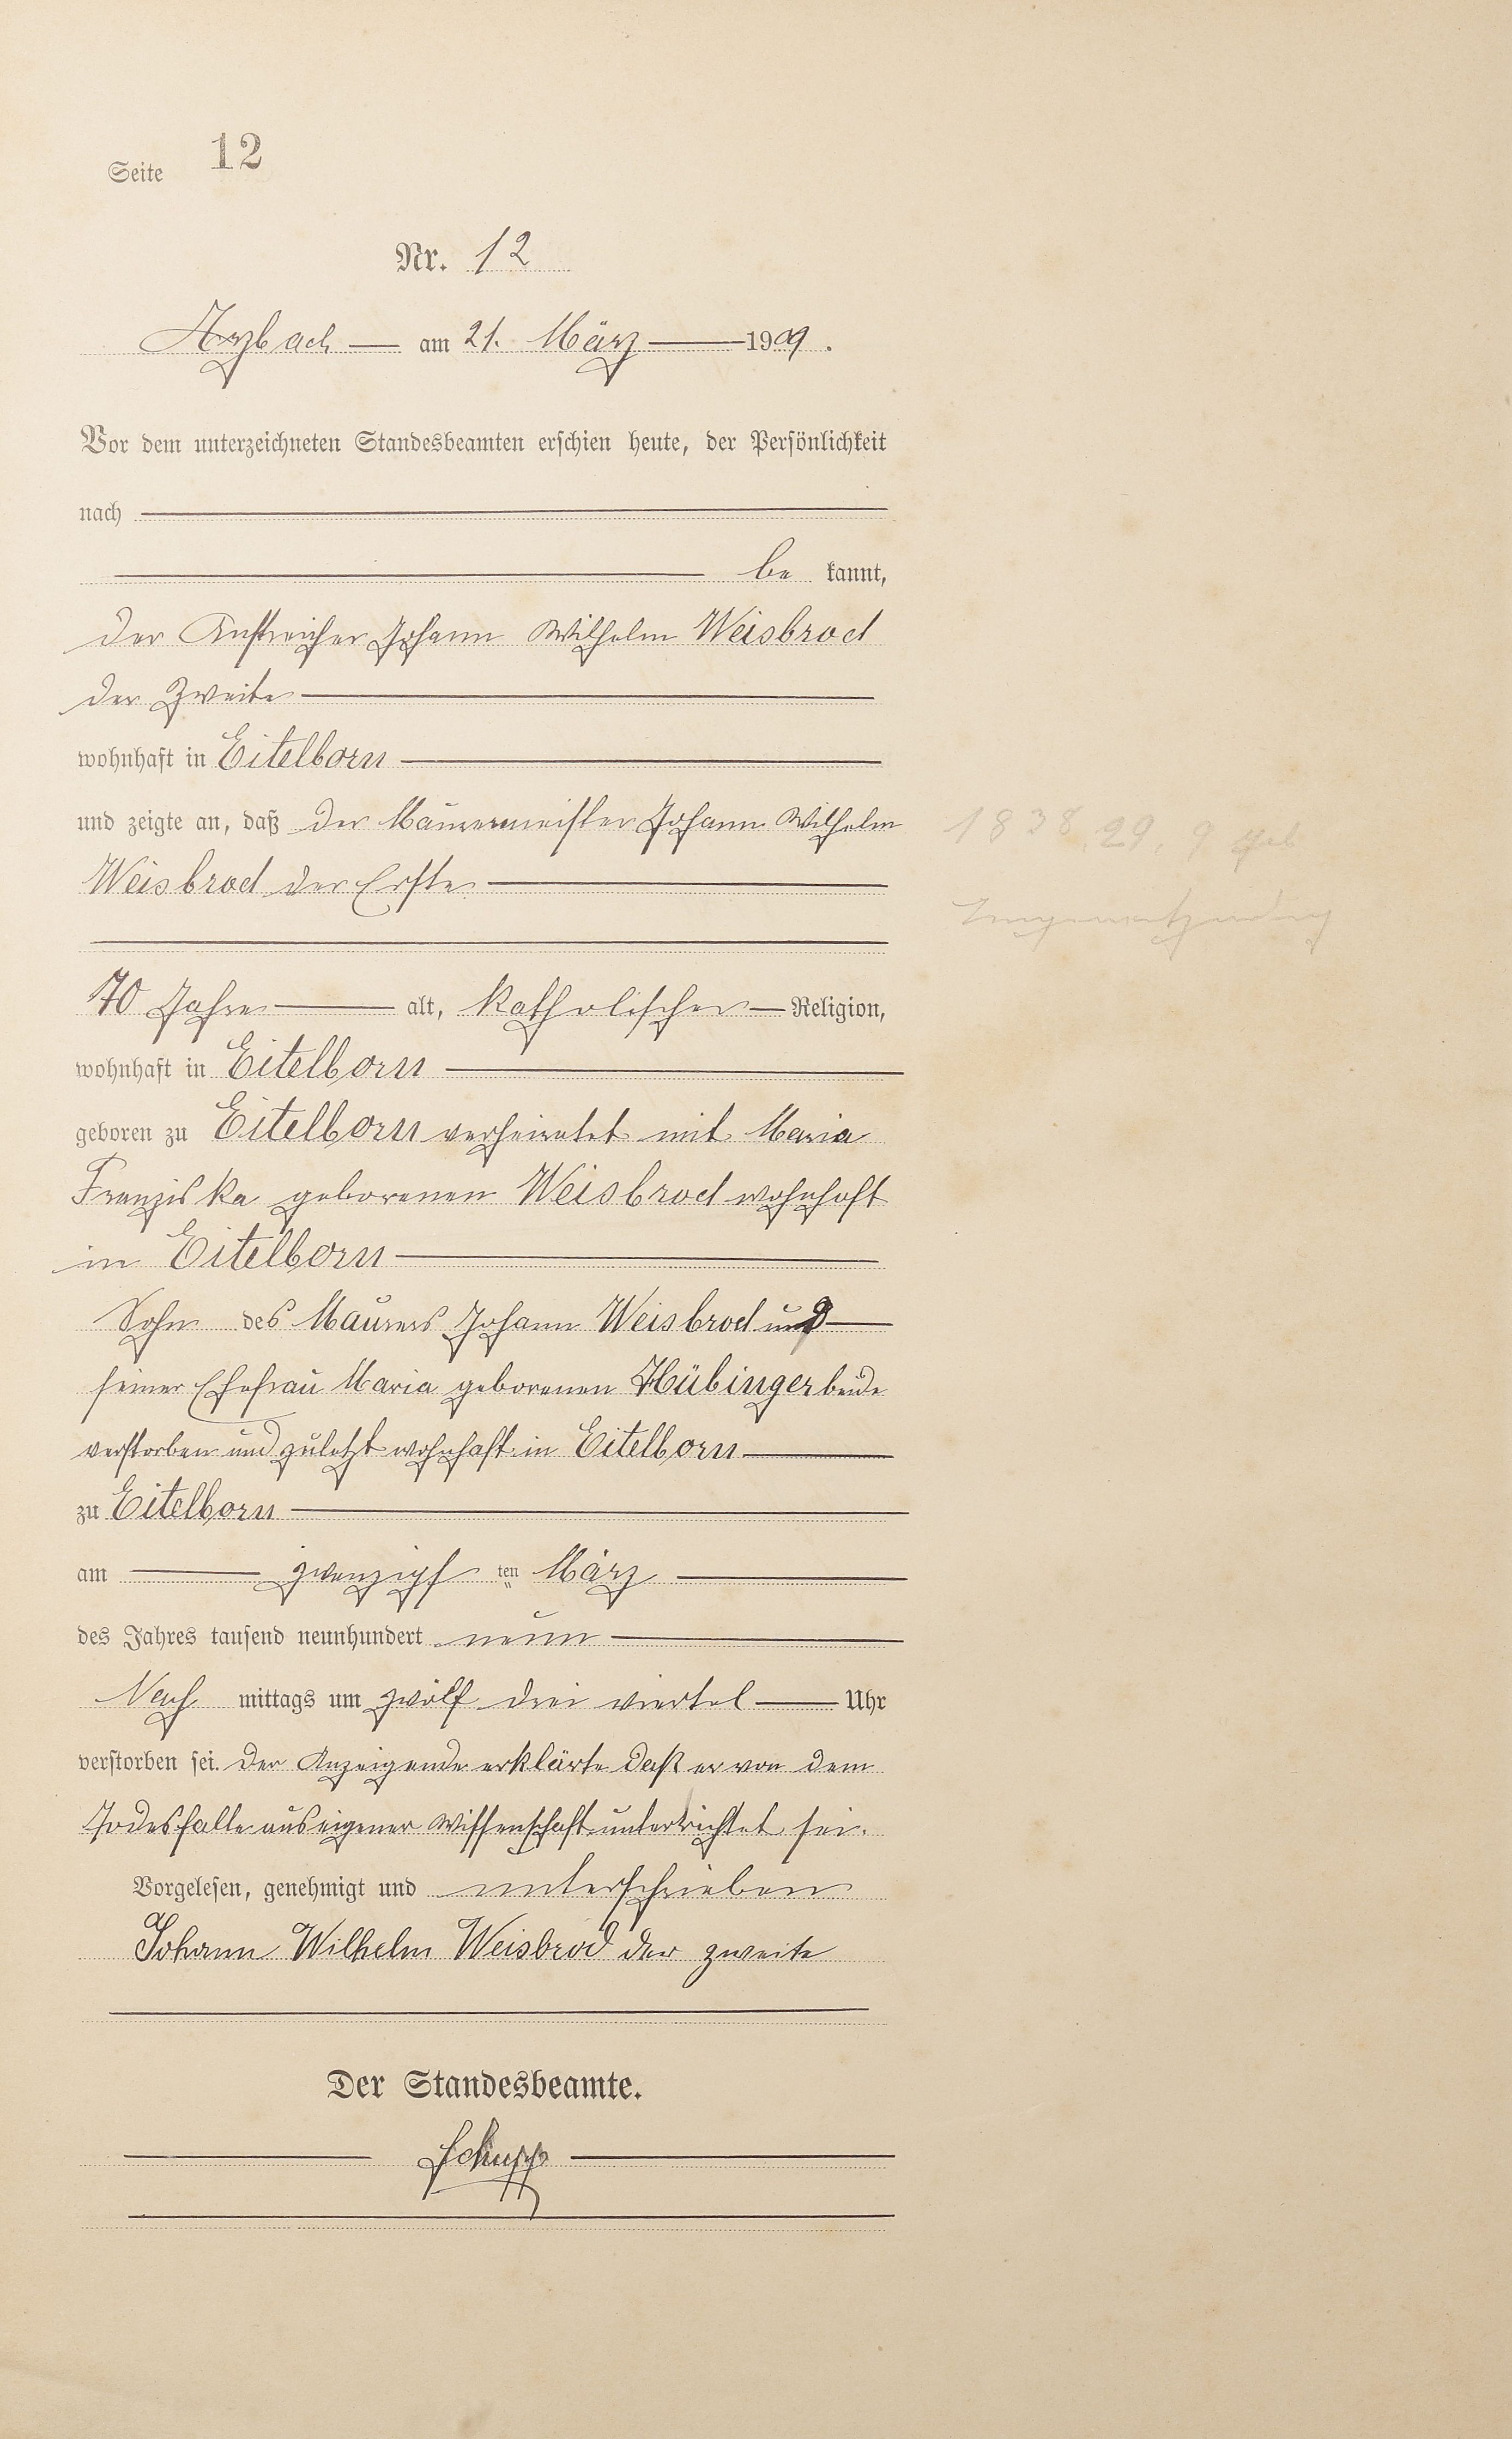 Seite 12
Nr. 12
Arzbach am 21. März 1909.
Vor dem unterzeichneten Standesbeamten erschien heute, der Persönlichkeit
nach
be kannt,
der Anstreicher Johann Wilhelm Weisbrod
der Zweite
wohnhaft in Eitelborn
und zeigte an, daß der Maurermeister Johann Wilhelm
Weisbrod der Erste
70 Jahre alt, katholischer Religion,
wohnhaft in Eitelborn
geboren zu Eitelborn verheiratet mit Maria
Franziska geborenen Weisbrod wohnhaft
in Eitelborn
Sohn des Maurers Johann Weisbrod und
seiner Ehefrau Maria geborenen Hübinger beide
verstorben und zuletzt wohnhaft in Eitelborn
zu Eitelborn
am zwanzigs ten März
des Jahres tausend neunhundert neun
Nach mittags um zwölf drei viertel Uhr
verstorben sei. Der Anzeigende erklärte daß er von dem
Todesfalle aus eigener Wissenschaft unterrichtet sei.
Vorgelesen, genehmigt und unterschrieben
Johann Wilhelm Weisbrod der zweite
Der Standesbeamte.
Schupp
1838, 29. 9 geb